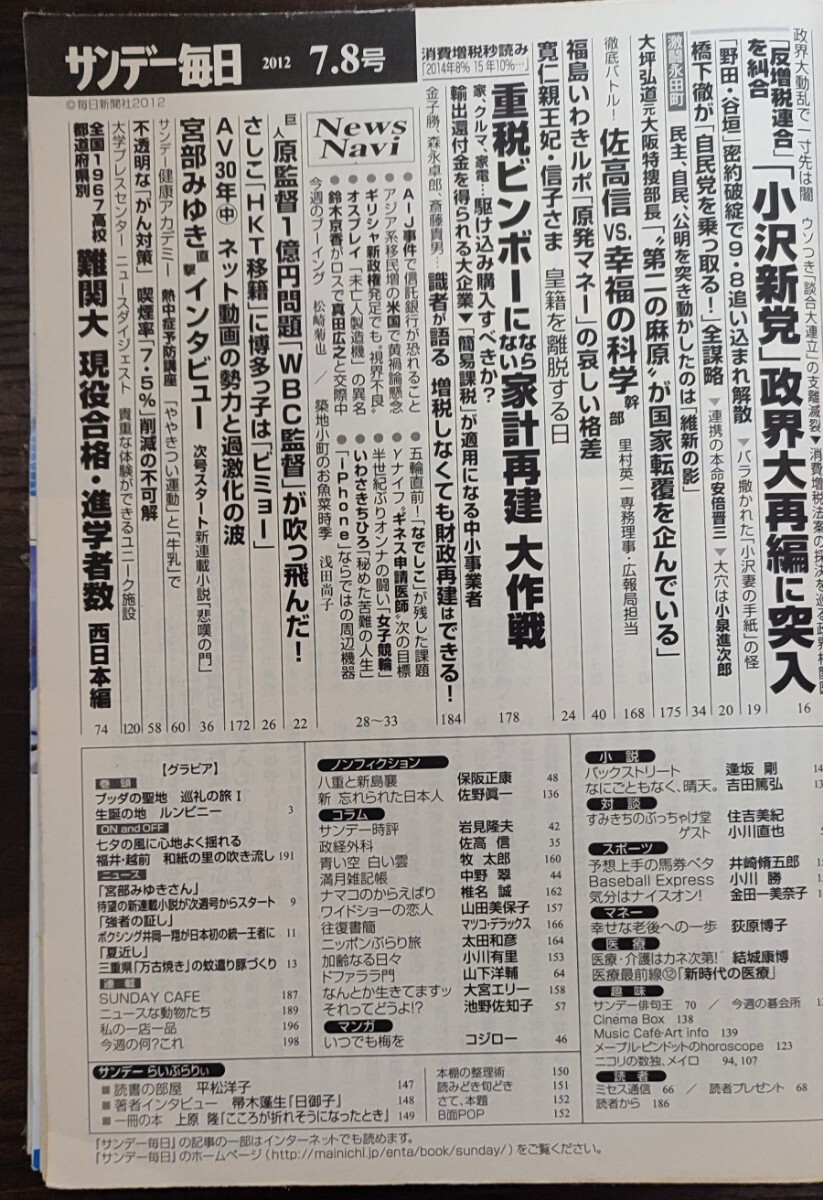 サンデー毎日 2012 7.8号
©毎日新聞社2012
政界大動乱で一寸先は闇 ウソつき「談合大連立」の支離滅裂▼消費増税法案の採決を巡る政界相関図
「反増税連合」を糾合
「小沢新党」政界大再編に突入 16
「野田・谷垣」密約破綻で9・8追い込まれ解散 ▼バラ撒かれた「小沢妻の手紙」の怪 19
橋下徹が「自民党を乗っ取る!」全謀略 ▼連携の本命安倍晋三 ▼大穴は小泉進次郎 20
激闘永田町 民主、自民、公明を突き動かしたのは「維新の影」 34
大坪弘道元大阪特捜部長「〝第二の麻原〟が国家転覆を企んでいる」 175
徹底バトル! 佐高信vs.幸福の科学幹部 里村英一専務理事・広報局担当 168
福島いわきルポ「原発マネー」の哀しい格差 40
寬仁親王妃・信子さま 皇籍を離脱する日 24
消費増税秒読み
「2014年8% 15年10%…」
重税ビンボーにならない家計再建 大作戦 178
家、クルマ、家電…駆け込み購入すべきか?
輸出還付金を得られる大企業▼「簡易課税」が適用になる中小事業者
金子勝、森永卓郎、斎藤貴男…識者が語る 増税しなくても財政再建はできる! 184
News Navi
●AIJ事件で信託銀行が恐れること
●アジア系移民増の米国で黄禍論懸念
●ギリシャ新政権発足でも〝視界不良〟
●オスプレイ「未亡人製造機」の異名
●鈴木京香がロスで真田広之と交際中
●五輪直前!「なでしこ」が残した課題
●γナイフ〝ギネス申請医師〟次の目標
●半世紀ぶりオンナの闘い「女子競輪」
●いわさきちひろ「秘めた苦難の人生」
●「iPhone」ならではの周辺機器
今週のブーイング 松崎菊也 / 築地小町のお魚菜時季 浅田尚子
28〜33
巨人原監督1億円問題「WBC監督」が吹っ飛んだ! 22
さしこ「HKT移籍」に博多っ子は「ビミョー」 26
AV30年㊥ ネット動画の勢力と過激化の波 172
宮部みゆき直撃インタビュー 次号スタート新連載小説「悲嘆の門」 36
サンデー健康アカデミー 熱中症予防講座 「ややきつい運動」と「牛乳」で 60
不透明な「がん対策」 喫煙率「7・5%」削減の不可解 58
大学プレスセンター ニュースダイジェスト 貴重な体験ができるユニーク施設 120
全国1967高校
都道府県別
難関大 現役合格・進学者数 西日本編 74
【グラビア】
巻頭
ブッダの聖地 巡礼の旅Ⅰ
生誕の地 ルンビニー 3
ON and OFF
七夕の風に心地よく揺れる
福井・越前 和紙の里の吹き流し 191
ニュース
「宮部みゆきさん」
待望の新連載小説が次週号からスタート 9
「強者の証し」
ボクシング井岡一翔が日本初の統一王者に 11
「夏近し」
三重県「万古焼き」の蚊遣り豚づくり 13
連載
SUNDAY CAFE 187
ニュースな動物たち 189
私の一店一品 196
今週の何?これ 198
ノンフィクション
八重と新島襄 保阪正康 48
新 忘れられた日本人 佐野眞一 136
コラム
サンデー時評 岩見隆夫 42
政経外科 佐高 信 35
青い空 白い雲 牧 太郎 160
満月雑記帳 中野 翠 44
ナマコのからえばり 椎名 誠 162
ワイドショーの恋人 山田美保子 157
往復書簡 マツコ・デラックス 166
ニッポンぶらり旅 太田和彦 164
加齢なる日々 小川有里 153
ドファララ門 山下洋輔 64
なんとか生きてますッ 大宮エリー 158
それってどうよ!? 池野佐知子 57
マンガ
いつでも梅を コジロー 46
小説
バックストリート 逢坂 剛
なにごともなく、晴天。 吉田篤弘
対談
すみきちのぶっちゃけ堂 住吉美紀
ゲスト 小川直也
スポーツ
予想上手の馬券ベタ 井崎脩五郎
Baseball Express 小川 勝
気分はナイスオン! 金田一美奈子
マネー
幸せな老後への一歩 荻原博子
医療
医療・介護はカネ次第! 結城康博
医療最前線⑫「新時代の医療」
趣味
サンデー俳句王 70 / 今週の碁会所
Cinema Box 138
Music Café・Art info 139
メープル・ピンドットのhoroscope 123
ニコリの数独、メイロ 94, 107
読者
ミセス通信 66 / 読者プレゼント 68
読者から 186
サンデー らいぶらりぃ
■読書の部屋 平松洋子 147
■著者インタビュー 帚木蓬生「日御子」 148
■一冊の本 上原 隆「こころが折れそうになったとき」 149
本棚の整理術 150
読みどき旬どき 151
さて、本題 152
B面POP 152
「サンデー毎日」の記事の一部はインターネットでも読めます。
「サンデー毎日」のホームページ(http://mainichi.jp/enta/book/sunday/)をご覧ください。